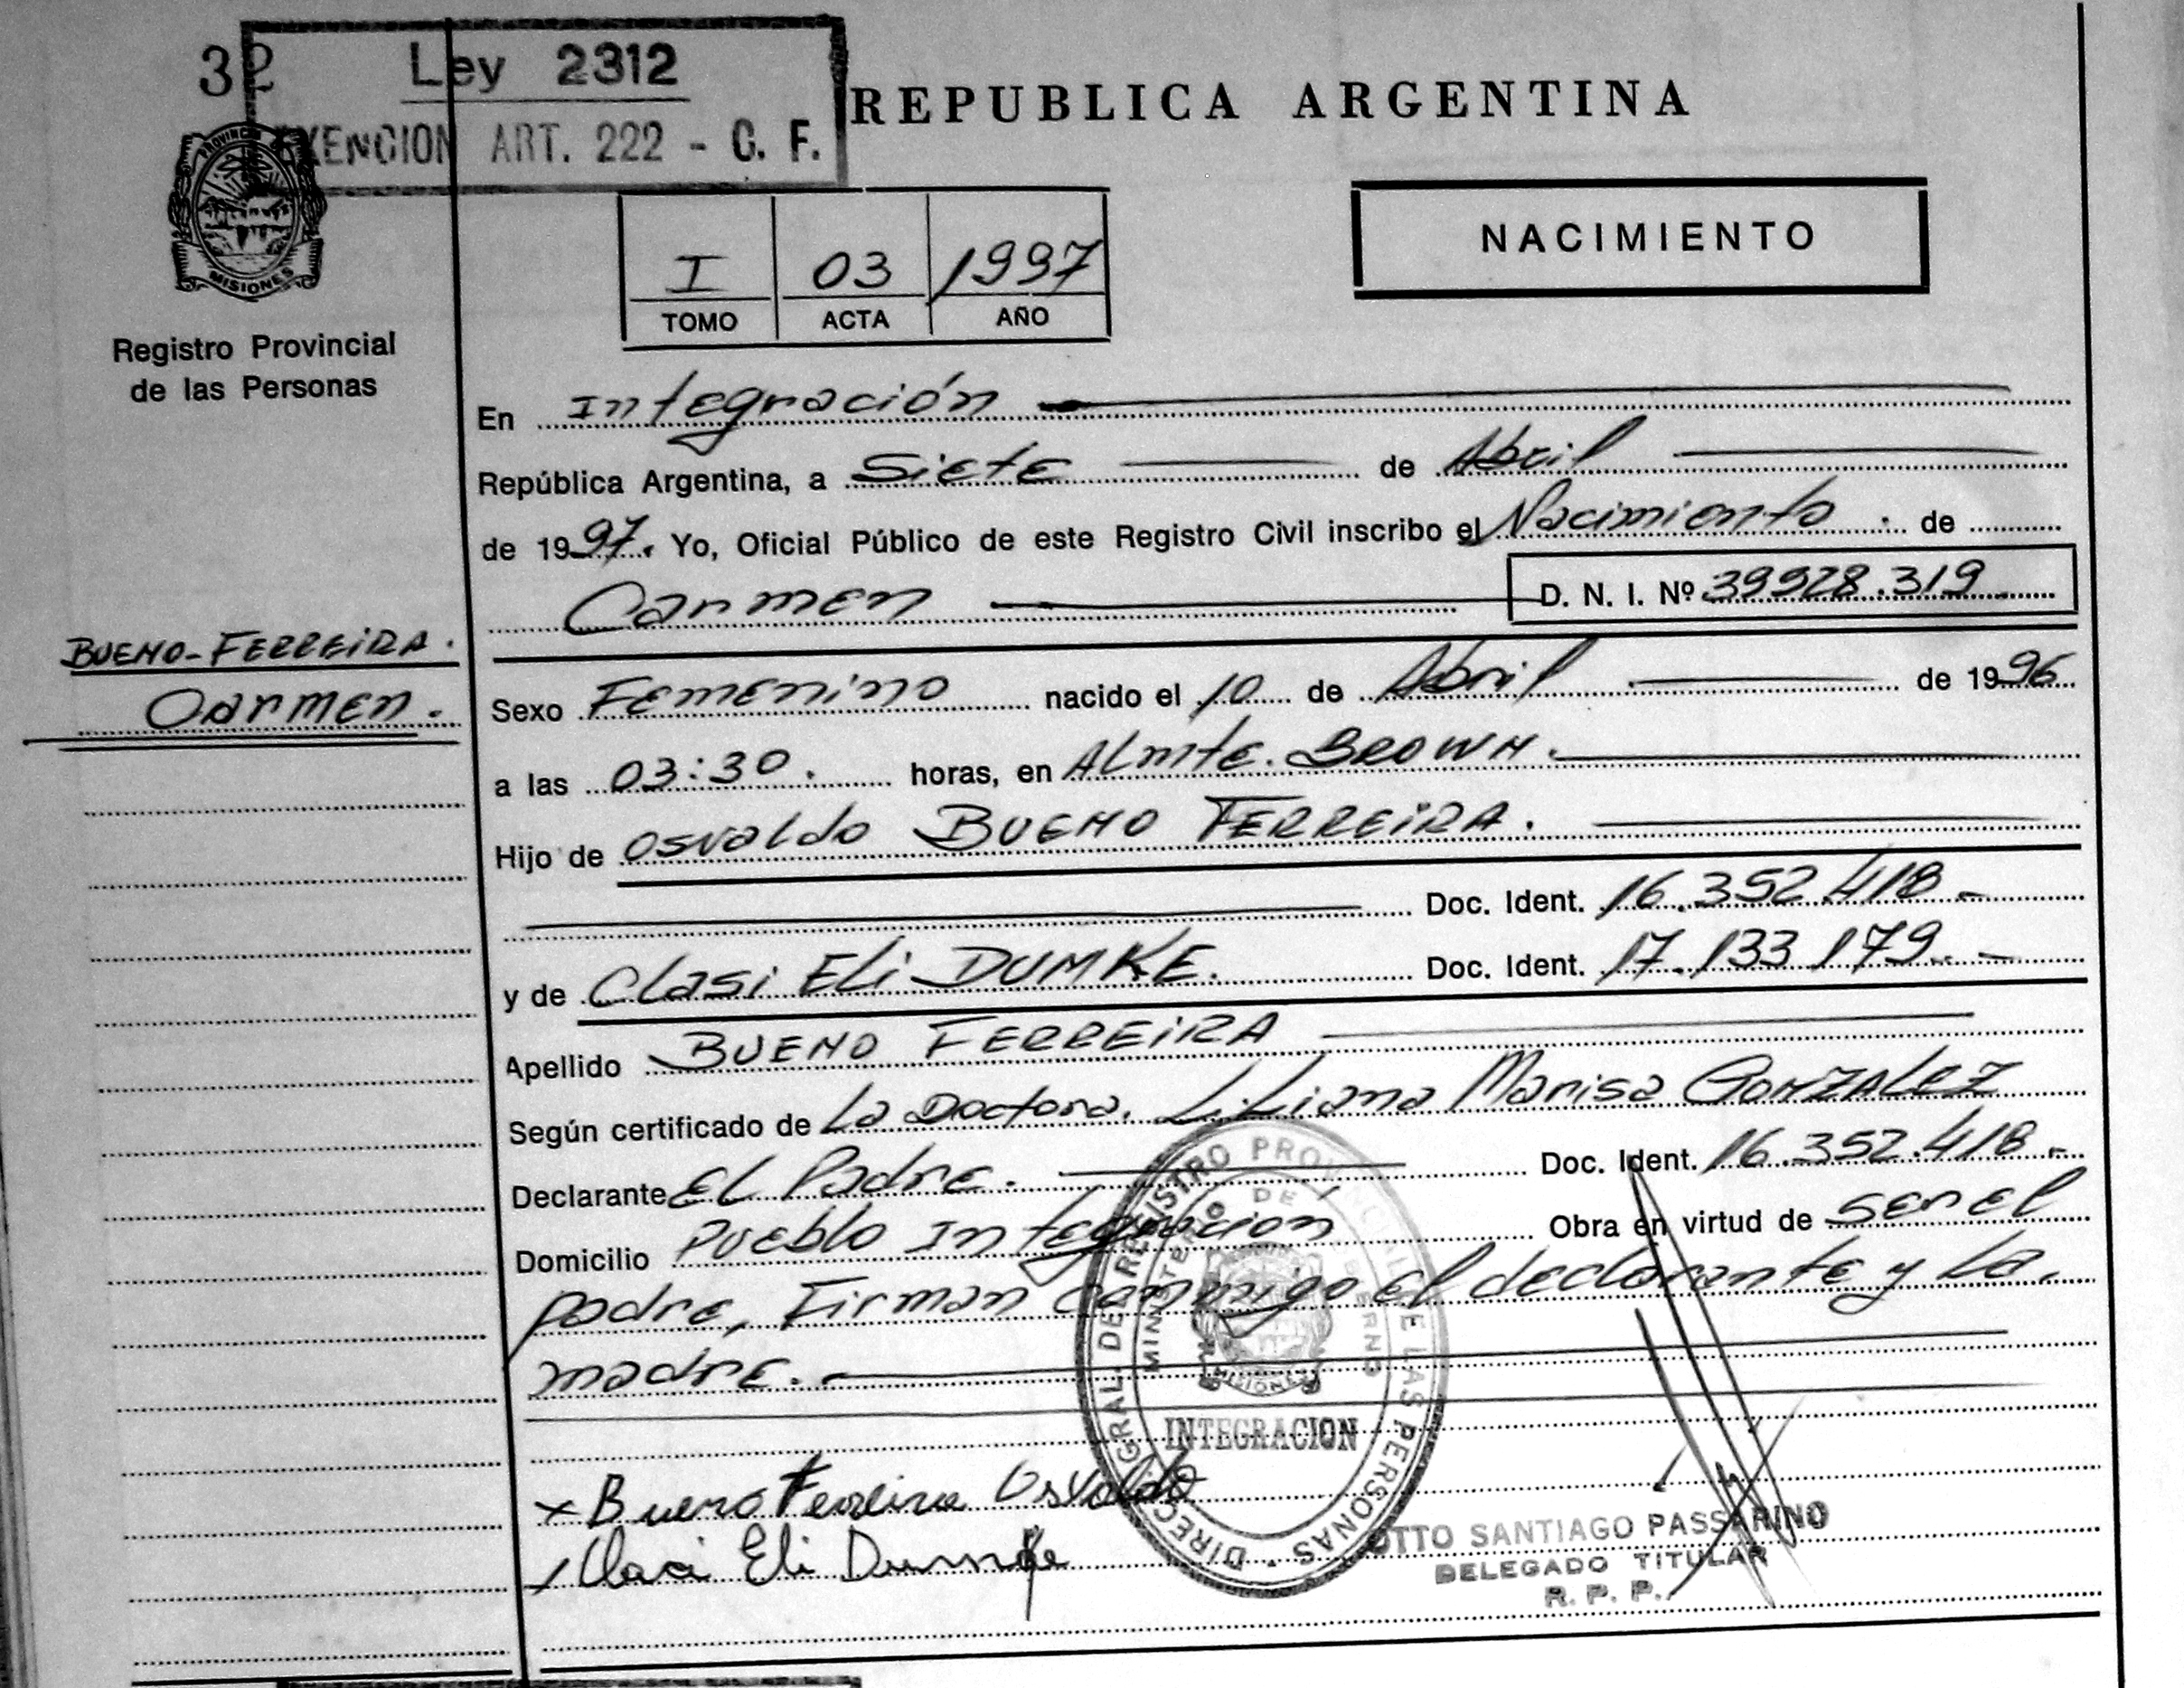 32
Ley 2312
EXENCION ART. 222 - C. F.
REPUBLICA ARGENTINA
PROVINCIA
MISIONES
Registro Provincial
de las Personas
I 03 1997
TOMO ACTA AÑO
NACIMIENTO
En Integración
República Argentina, a Siete de Abril
de 1997. Yo, Oficial Público de este Registro Civil inscribo el Nacimiento de
Carmen D. N. I. Nº 39928.319
BUENO-FERREIRA.
Carmen.
Sexo Femenino nacido el 10 de Abril de 1996
a las 03:30. horas, en Almte. BROWN.
Hijo de Osvaldo BUENO FERREIRA.
Doc. Ident. 16.352.418.-
y de Clasi Eli DUMKE. Doc. Ident. 17.133.179.-
Apellido BUENO FERREIRA
Según certificado de La Doctora. Liliana Marisa GONZALEZ
Declarante El Padre. Doc. Ident. 16.352.418.-
Domicilio Pueblo Integración Obra en virtud de ser el
padre, Firman conmigo el declarante y la
madre.
DIREC. GRAL. DEL REGISTRO PROVINCIAL DE LAS PERSONAS
MINISTERIO DE GOBIERNO
MISIONES
INTEGRACION
x Bueno Ferreira Osvaldo
x Clasi Eli Dumke
OTTO SANTIAGO PASSARINO
DELEGADO TITULAR
R. P. P.